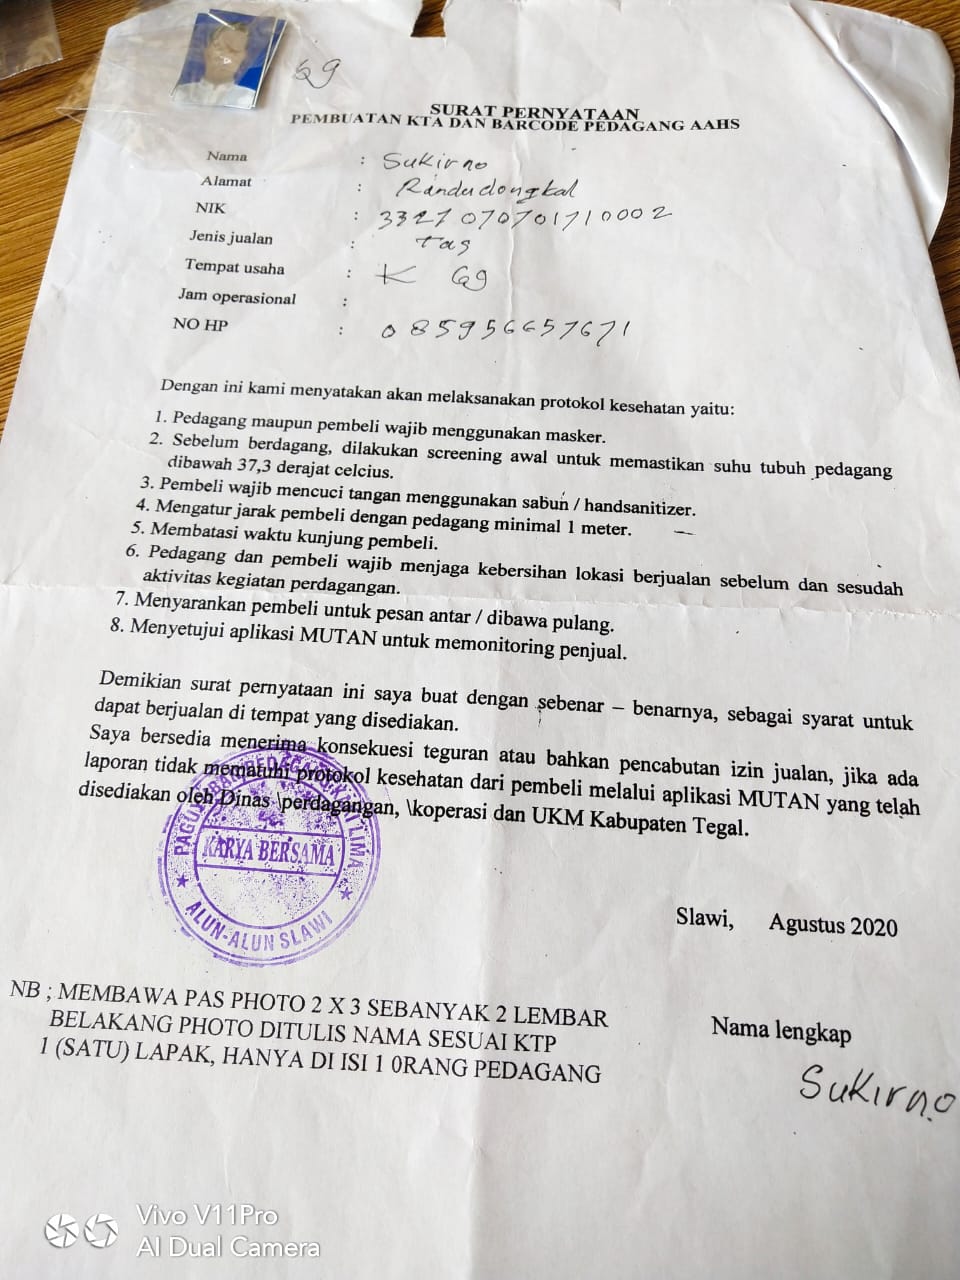 69
SURAT PERNYATAAN
PEMBUATAN KTA DAN BARCODE PEDAGANG AAHS
Nama : Sukirno
Alamat : Randudongkal
NIK : 3327070701710002
Jenis jualan : tas
Tempat usaha : K 69
Jam operasional :
NO HP : 085956657671
Dengan ini kami menyatakan akan melaksanakan protokol kesehatan yaitu:
1. Pedagang maupun pembeli wajib menggunakan masker.
2. Sebelum berdagang, dilakukan screening awal untuk memastikan suhu tubuh pedagang
dibawah 37,3 derajat celcius.
3. Pembeli wajib mencuci tangan menggunakan sabun / handsanitizer.
4. Mengatur jarak pembeli dengan pedagang minimal 1 meter.
5. Membatasi waktu kunjung pembeli.
6. Pedagang dan pembeli wajib menjaga kebersihan lokasi berjualan sebelum dan sesudah
aktivitas kegiatan perdagangan.
7. Menyarankan pembeli untuk pesan antar / dibawa pulang.
8. Menyetujui aplikasi MUTAN untuk memonitoring penjual.
Demikian surat pernyataan ini saya buat dengan sebenar – benarnya, sebagai syarat untuk
dapat berjualan di tempat yang disediakan.
Saya bersedia menerima konsekuesi teguran atau bahkan pencabutan izin jualan, jika ada
laporan tidak mematuhi protokol kesehatan dari pembeli melalui aplikasi MUTAN yang telah
disediakan oleh Dinas \perdagangan, \koperasi dan UKM Kabupaten Tegal.
KARYA BERSAMA
ALUN-ALUN SLAWI
Slawi, Agustus 2020
NB ; MEMBAWA PAS PHOTO 2 X 3 SEBANYAK 2 LEMBAR
BELAKANG PHOTO DITULIS NAMA SESUAI KTP
1 (SATU) LAPAK, HANYA DI ISI 1 0RANG PEDAGANG
Nama lengkap
Sukirno
Vivo V11Pro
AI Dual Camera